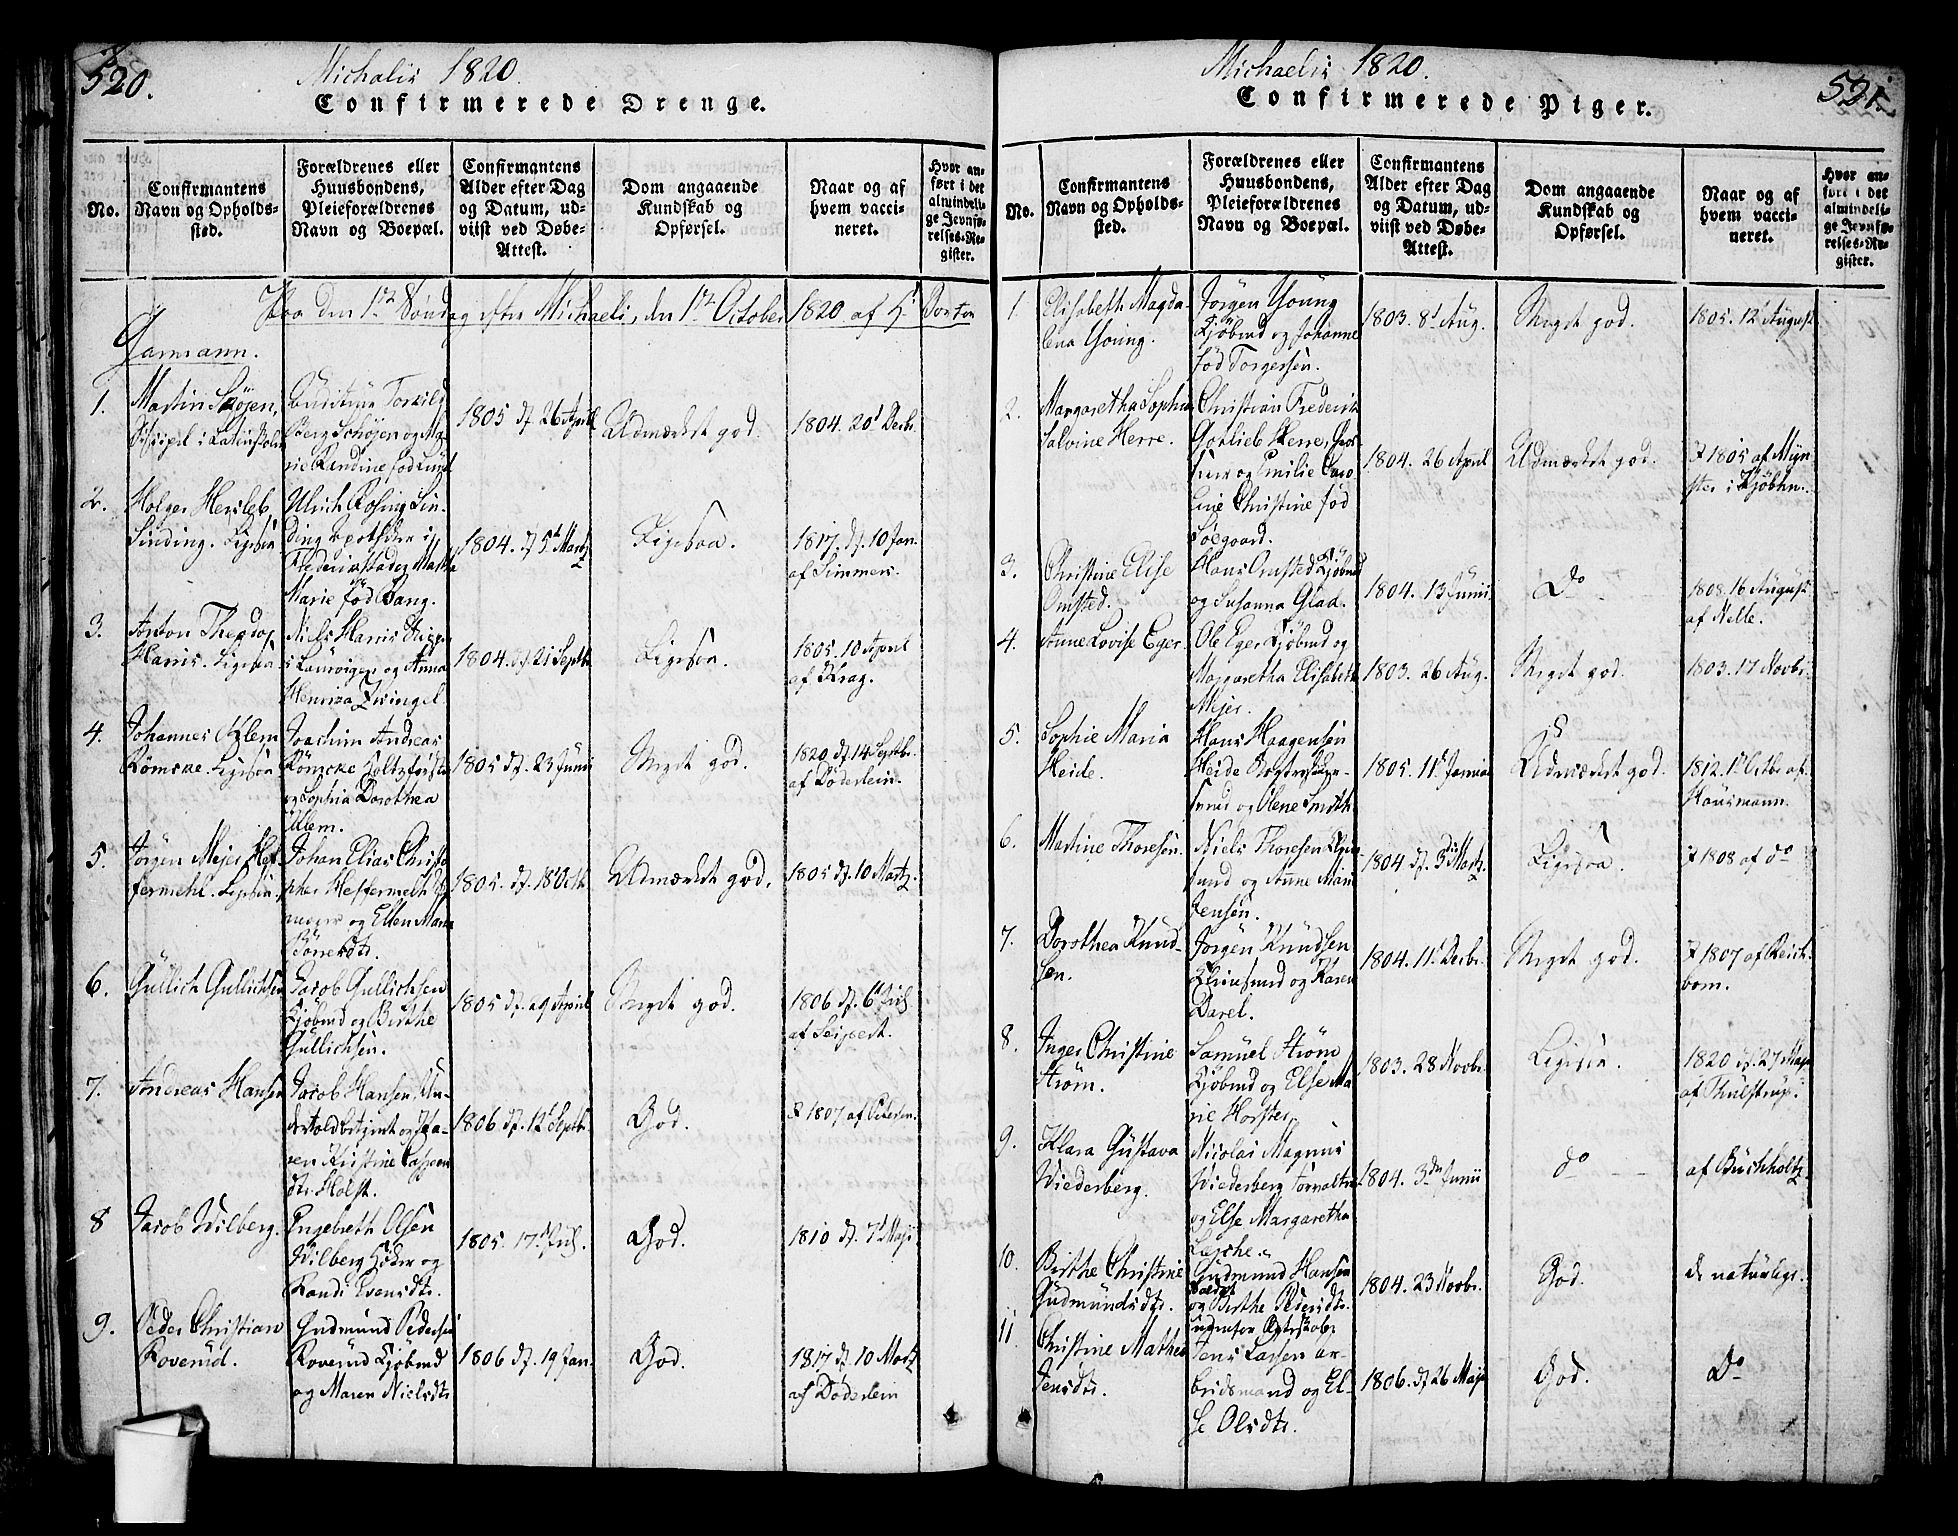 520.
Michalis 1820.
Confirmerede Drenge.
No.
Confirmantens Navn og Opholds-sted.
Forældrenes eller Huusbondens, Pleieforældrenes Navn og Boepæl.
Confirmantens Alder efter Dag og Datum, ud-viist ved Døbe-Attest.
Dom angaaende Kundskab og Opførsel.
Naar og af hvem vacci-neret.
Hvor an-ført i det almindeli-ge Jevnfø-relses-Re-gister.
Paa den 1te Søndag efter Michaeli, den 1te October 1820 af Hr
Garmann.
1.
Martin
Discipel i Latinskolen
og
1805 d. 26 April
Udmærket god.
1804. 20d Decbr.
2.
Holger Hersleb
Sinding. Ligesaa
Ulrich Rosing Sin-
ding Apotheker i
Marie fød Bang.
1804. d. 5d Martz
Ligesaa.
1817. d. 10 Jan.
af Simmers.
3.
Anton
Harris. Ligesaa
Niels Harris
i Laurvigen og Anna
1804. d. 21 Septbr.
Ligesaa.
1805. 10 April
af Krag.
4.
Johannes Klem
Römcke. Ligesaa
Joachim Andreas
Römcke
og Sophia Dorothea
Klem.
1805 d. 23 Junii
Meget god.
1820 d. 14 Septbr.
af Döderlein.
5.
Jörgen Mejer Hef-
fermehl. Ligesaa
Johan Elias Christo-
pher Heffermehl
og Ellen Marie
1805. d. 18 Octb.
Udmærket god.
1805 d. 10 Martz.
6.
Gullich Gullichsen
Jacob Gullichsen
Kjöbmd og Birthe
Gullichsen.
1805 d. 29 April
Meget god.
1806 d.
af Seipert.
7.
Andreas Hansen
Jacob Hansen, Un-
dertoldbetjent og Ka-
ren Kristine Caspers
dtr Holst.
1806 d. 12 Septbr.
God.
1807 af Petersen.
8
Jacob Wilberg.
Engebreth Olsen
Wilberg og
Randi Evensdtr.
1805. 17 Juli.
God.
1810 d. 7d Maji
9.
Peder Christian
Roverud.
Gudmund Pedersen
Roverud Kjöbmd
og Maren Nielsdtr
1806 d. 19 Jan.
God.
1817 d. 10 Martz
af Döderlein
521.
Michaelis 1820.
Confirmerede Piger.
No.
Confirmantens Navn og Opholds-sted.
Forældrenes eller Huusbondens, Pleieforældrenes Navn og Boepæl.
Confirmantens Alder efter Dag og Datum, ud-viist ved Døbe-Attest.
Dom angaaende Kundskab og Opførsel.
Naar og af hvem vacci-neret.
Hvor an-ført i det almindeli-ge Jevnfø-relses-Re-gister.
1.
Elisabeth Magda-
lena Young.
Jörgen Young
Kjöbmd og Johanne
fød Torgersen.
1803. 8d Aug.
Meget god.
1805. 12 August
2.
Margaretha Sophia
Salvine Herre.
Christian Frederik
Gotlieb Herre,
og Emilie Caro-
line Christine fød
Soegaard.
1804. 26 April
Udmærket god.
1805 af Myn-
ster i Kjöbhn.
3.
Christine Elise
Omsted.
Hans Omsted Kjöbmd
og Susanna Glad.
1804. 13 Junii
Do
1808. 16 August
af Melle.
4.
Anne Lovise Eger.
Ole Eger Kjöbmd og
Margaretha Elisabeth
Mejer.
1803. 26 Aug.
Meget god.
1803. 17 Novbr.
5.
Sophie Maria
Heide.
Hans Haagensen
Heide
og Olene Smith
1805. 11d Januar
Udmærket god.
1812. 1 Octbr af
Hausmann.
6.
Martine Thoresen.
Niels Thoresen
og Anne Marie
Jensen.
1804 d. 3die Martz
Ligesaa.
1808 af do
7.
Dorothea Knud-
sen.
Jörgen Knudsen
og Karen
Darel.
1804. 11d Decbr.
Meget god.
1807 af Reich-
born.
8.
Inger Christine
Ström.
Samuel Ström
Kjöbmd og Else Ma-
rie Horster
1803. 28 Novbr.
Ligesaa.
1820 d. 27 Maji
af Thulstrup.
9.
Klara Gustava
Wiederberg.
Nicolai Magnus
Wiederberg
og Else Margaretha
Lasche.
1804. 3die Junii
do
af Buchholtz.
10.
Birthe Christine
Gudmundsdtr.
Gudmund Hansen
og Birthe Pedersdtr.
udenfor Egteskab
1804. 23 Novbr.
God.
de naturlige.
11
Christine Mathea
Jensdtr.
Jens Larsen ar-
beidsmand og El-
se Olsdtr.
1806. d. 26 Maji
God.
Do